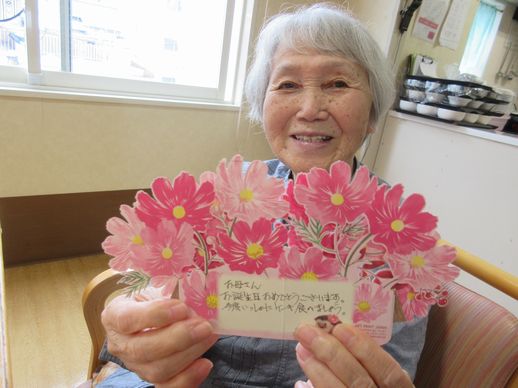 お母さん
お誕生日おめでとうございます。
今度いっしょにケーキ食べましょう。